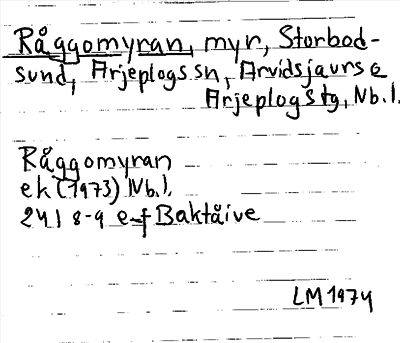 Råggomyran, myr, Storbod-
sund, Arjeplogs sn, Arvidsjaurs o
Arjeplogs tg, Nb.l.
Råggomyran
ek (1973) Nb.l.
24 I 8-9 e-f Baktåive
LM 1974